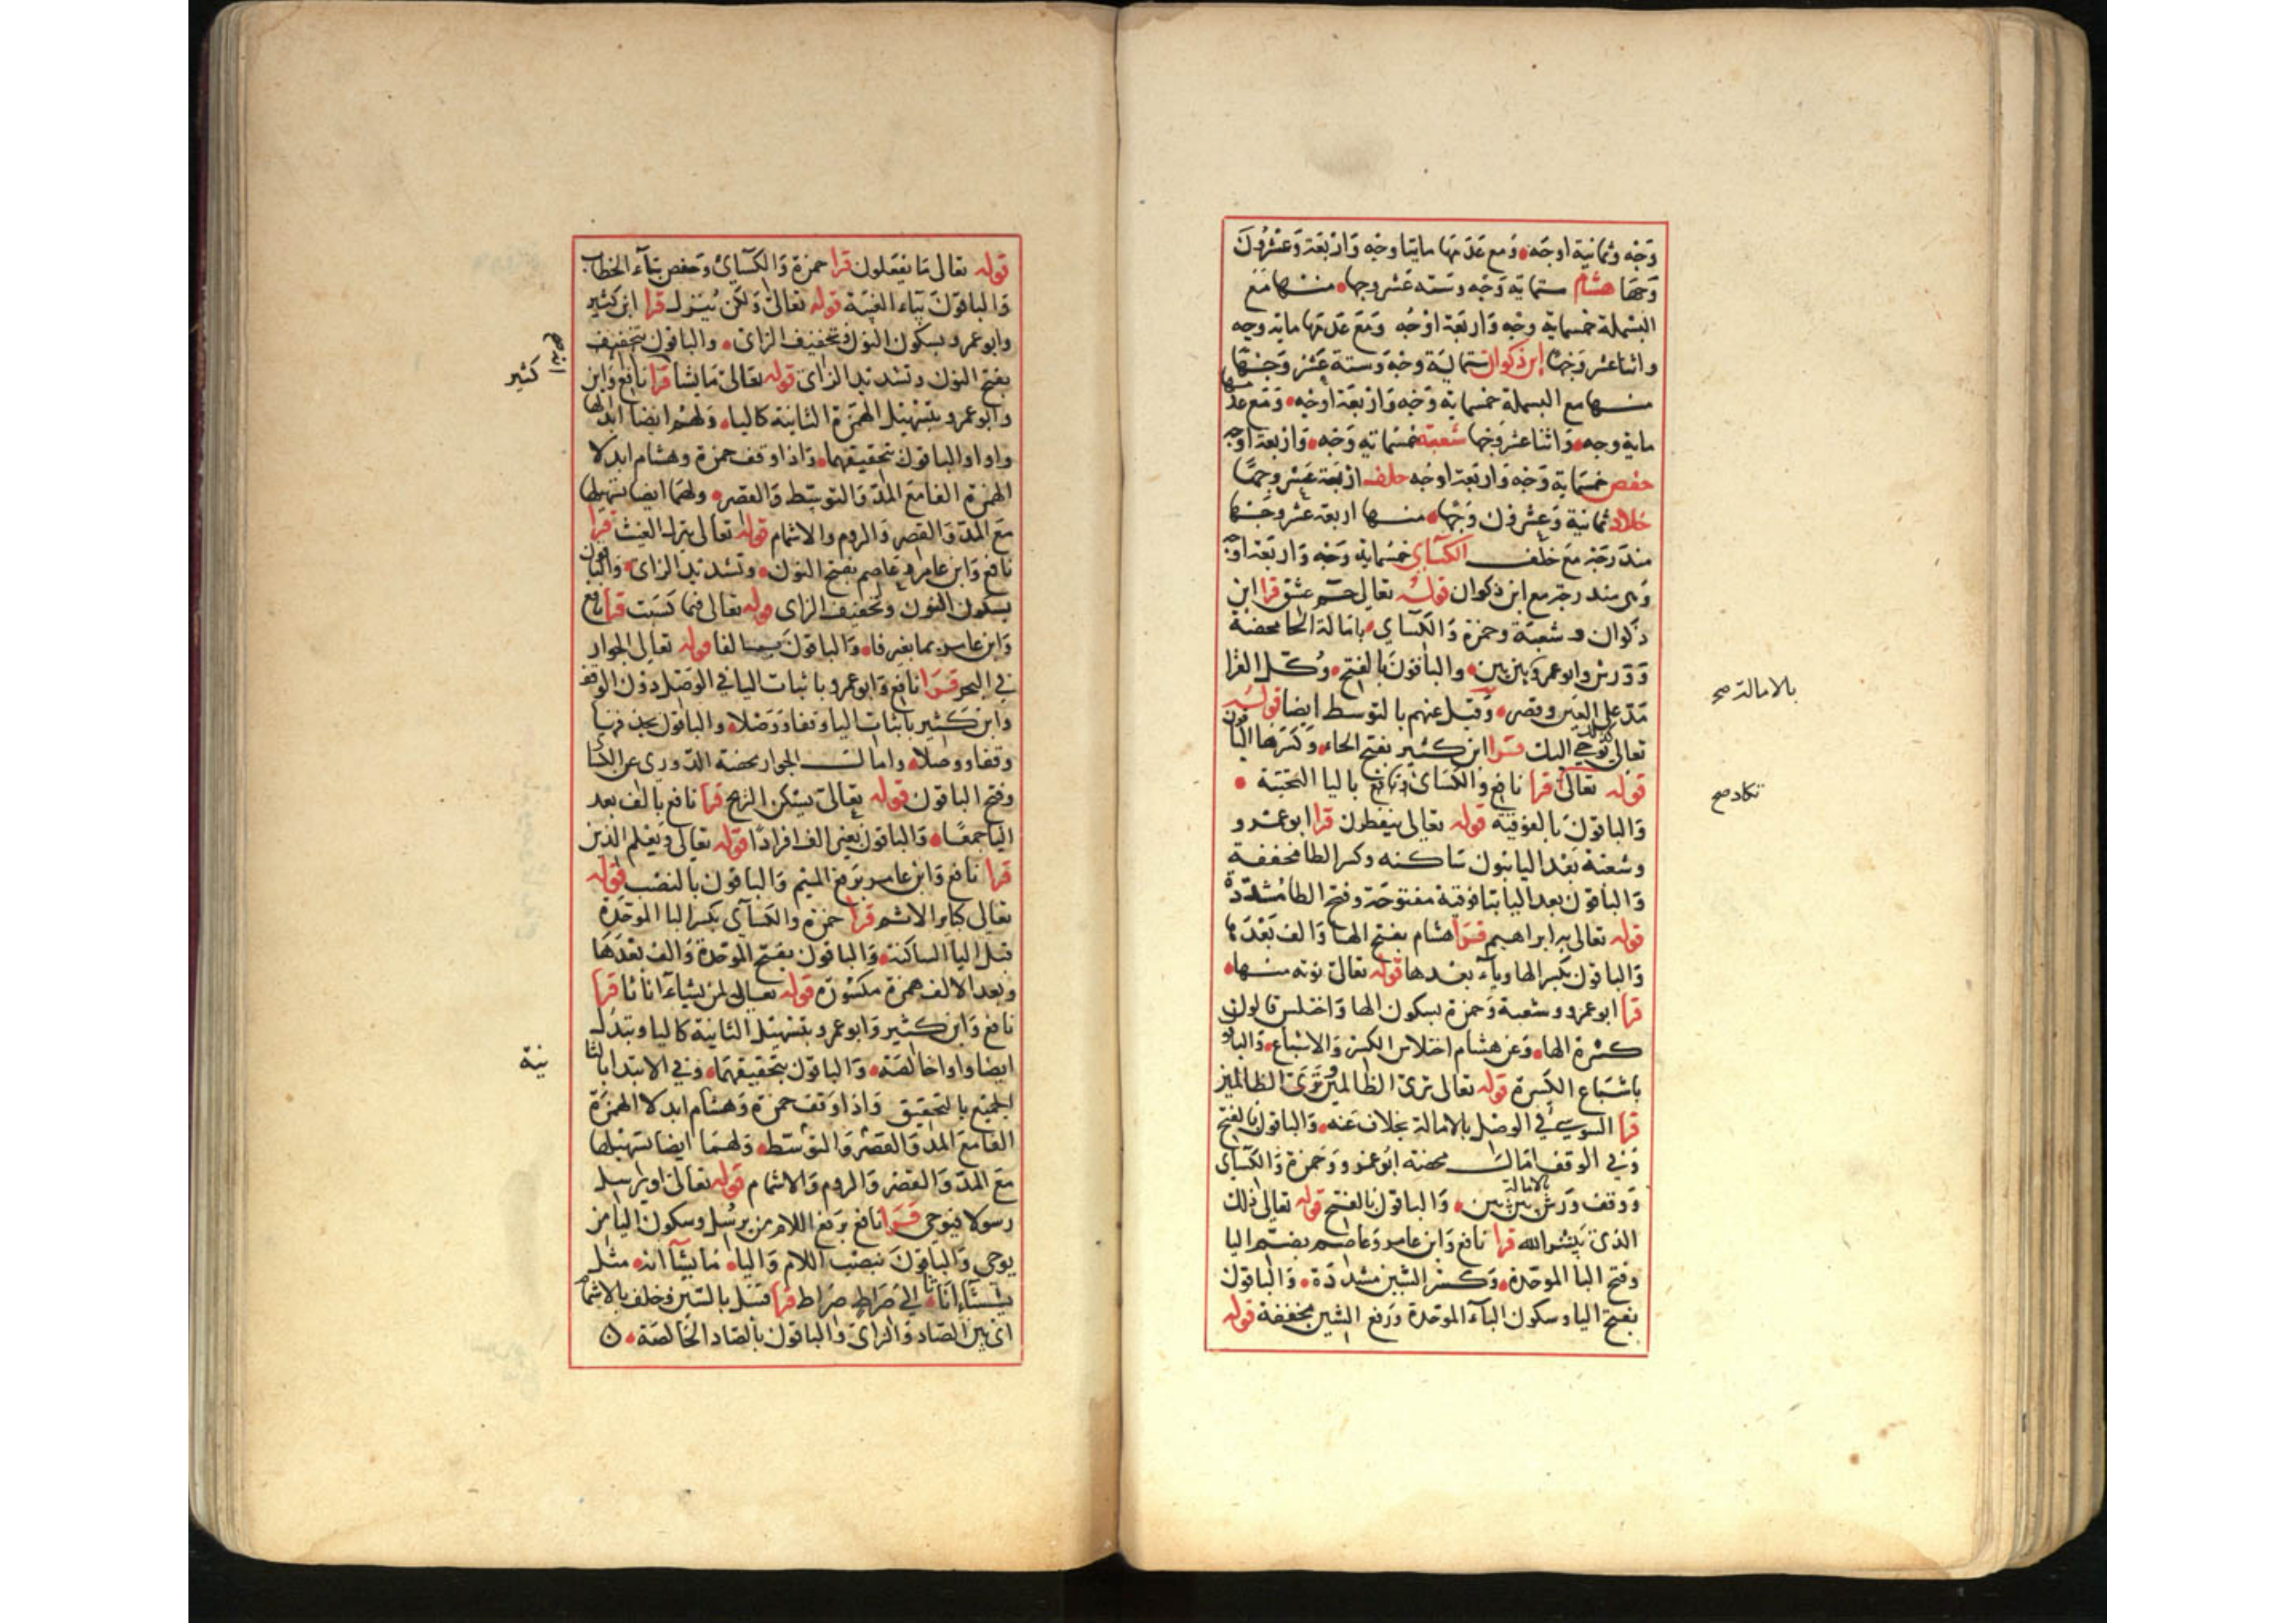 وَجْه وثمانية اوجه ومع عدمها مايتا وجه وَاربَعَة وَعشرونَ
وَجهًا هشام ستماية وَجْه وستة عشر وجها منها مَع
البسملة خمسماية وجه وَاربعَة اوْجُه وَمَع عدمها ماية وجه
واثنا عشر وَجهًا ابن ذكوان ستماية وجْه وَستة عَشر وَجْهًا
منها مع البسملة خمسماية وَجْه وَاربعَة اوجه وَمَع عدمها
ماية وجه وَاثنا عشر وَجها شعبَة خمسماية وَجْه وَاربعة اوجه
حفص خمسماية وَجْه وَاربَعَة اوجُه خلف اربَعَة عَشر وجهًا
خلاد ثمانية وَعشرون وَجْهًا منها اربعة عشر وَجْها
مندرجة مَعَ خلف الكسَاي خمسماية وَجْه وَاربَعَة اوجه
وَهي مندرجة مع ابن ذكوان قولُه تعالى حم عسق قرا ابن
ذكوان وشعبَة وحمزة وَالكسَاي بامَالة الحا محضة
وَوَرش وابو عمرو بين بين والباقونَ بالفتح وكل القرا
مَدّ على العين وقصر وَقيل عنهم بالتوسط ايضا قولُه
تعالى كذلك يوحي اليك قرا ابن كثير بفتح الحاء وَكسَرها الباقون
قوله تعالى قرا نافع والكسَاى باليا التحتية
وَالباقونَ بالفوقية قوله تعالى ينفطرن قرا ابو عمرو
وشعبة بَعْد اليا بنون سَاكنه وكسر الطا مخففة
وَالباقون بعد اليا بتا فوقية مفتوحَة وفتح الطا مشددة
قوله تعالى به ابراهيم قرا هشام بفتح الها وَالف بَعْدَها
وَالباقون بكسر الها وياء بعدها قوله تعالى نوته منها
قرا ابو عمرو وشعبة وَحمزة بسكون الها وَاختلس قالون
كسْرة الها وَعن هشام اختلاس الكسر وَالاشباع وَالباقون
باشباع الكَسرة قوله تعالى ترى الظالمين وَتَرَى الظالمين
قرا السوسي في الوصل بالامالة بخلاف عَنه وَالباقون بالفتح
وَفي الوقف امَال محضة ابو عمرو وَحمزة وَالكسَاي
وَوَقف وَرش بالامالة بين بين وَالباقون بالفتح قوله تعالى ذلك
الذى يَبشر الله قرا نافع وَابن عامر وَعاصم بضَم اليا
وفتح البا الموحّدة وَكسْر الشين مشدّدَة وَالباقون
بفتح اليا وسكون البآء الموحّدة وَرفع الشين مخففة قوله
بالامالة صح
تكاد صح
قوله تعالى مَا يفعَلون قرا حمزة وَالكسَاىُ وَحفص بتآء الخطاب
وَالباقونَ بيَاء الغيْبَة قوله تعالىَ وَلكن يُنزل قرا ابن كثير
وَابو عمرو بسكون النون وتخفيف الزاى والباقون بتخفيف
بفتح النون وتشديد الزاى قوله تعالىَ مَا يشا قرا نافع وَابن
وَابو عمرو بتسهيل الهمزَة الثانية كاليا وَلهُم ايضا ابدالها
واوا وَالباقون بتحقيقهما وَاذا وقف حمزة وهشام ابدلا
الهمزة الفا مَعَ المدّ وَالتوسّط وَالقصر ولهمَا ايضا تسهيلها
مَعَ المدّ وَالقصر وَالروم والاشمام قوله تعالى ينزل الغيث قرا
نافع وَابن عامر وَعَاصم بفتح النون وتشديد الزاى وَالباقون
بسكون النون وتخفيف الزاى قوله تعالى فبما كسَبَت قرا نافع
وَابن عامر بما بغير فا وَالباقونَ فبما بالفا قوله تعالى الجوار
في البحر قرَا نافع وَابو عمرو باثبات اليا في الوصْل دون الوقف
وَابن كثير باثبات اليا وقفا وَوَصْلا والباقون بحذفها
وقفا ووصلا وامال الجوار محضة الدّوري عن الكسَاي
وفتح الباقون قوله تعالىَ يسكن الريح قرا نافع بالف بعد
اليا جمعًا وَالباقون بغير الف افرادًا قوله تعالى وَيَعْلم الذين
قرا نافع وَابن عامر برَفع الميم وَالباقون بالنصب قوله
تعالى كباير الاثم قرا حمزة والكسَآي بكسر البا الموحّدة
قبل اليا السّاكنة وَالباقون بفتح الموَحدة وَالف بَعْدَها
وبَعد الالف همزة مكسورَة قوله تعالى لمن يشاءُ انَاثا قرا
نافع وَابن كثير وَابو عمرو بتسْهيل الثانية كاليا وتبدل
ايضا واوا خالصَة وَالباقون بتحقيقهمَا وَفي الابتدا بالثا
الجميع بالتحقيق وَاذا وَقف حمزة وَهشام ابدلا الهمزَة
الفا مَعَ المدّ وَالقصر وَالتوَسّط وَلهمَا ايضا تسهيلها
مَعَ المدّ وَالقصْر وَالروم وَالاشمام قوله تعالىَ او يرسل
رسولا فيوحي قرَا نافع برَفع اللام من يرسُل وسكون اليا من
يوحي وَالباقونَ بنصْب اللام وَاليا مَا يشآ انه مثل
يشآء انَاثا الىَ صرَاط صرَاط قرا قنبل بالسّين وَخلف بالاشمام
اى بين الصّاد وَالزاى وَالباقون بالصّاد الخالصَة
كثير
نية